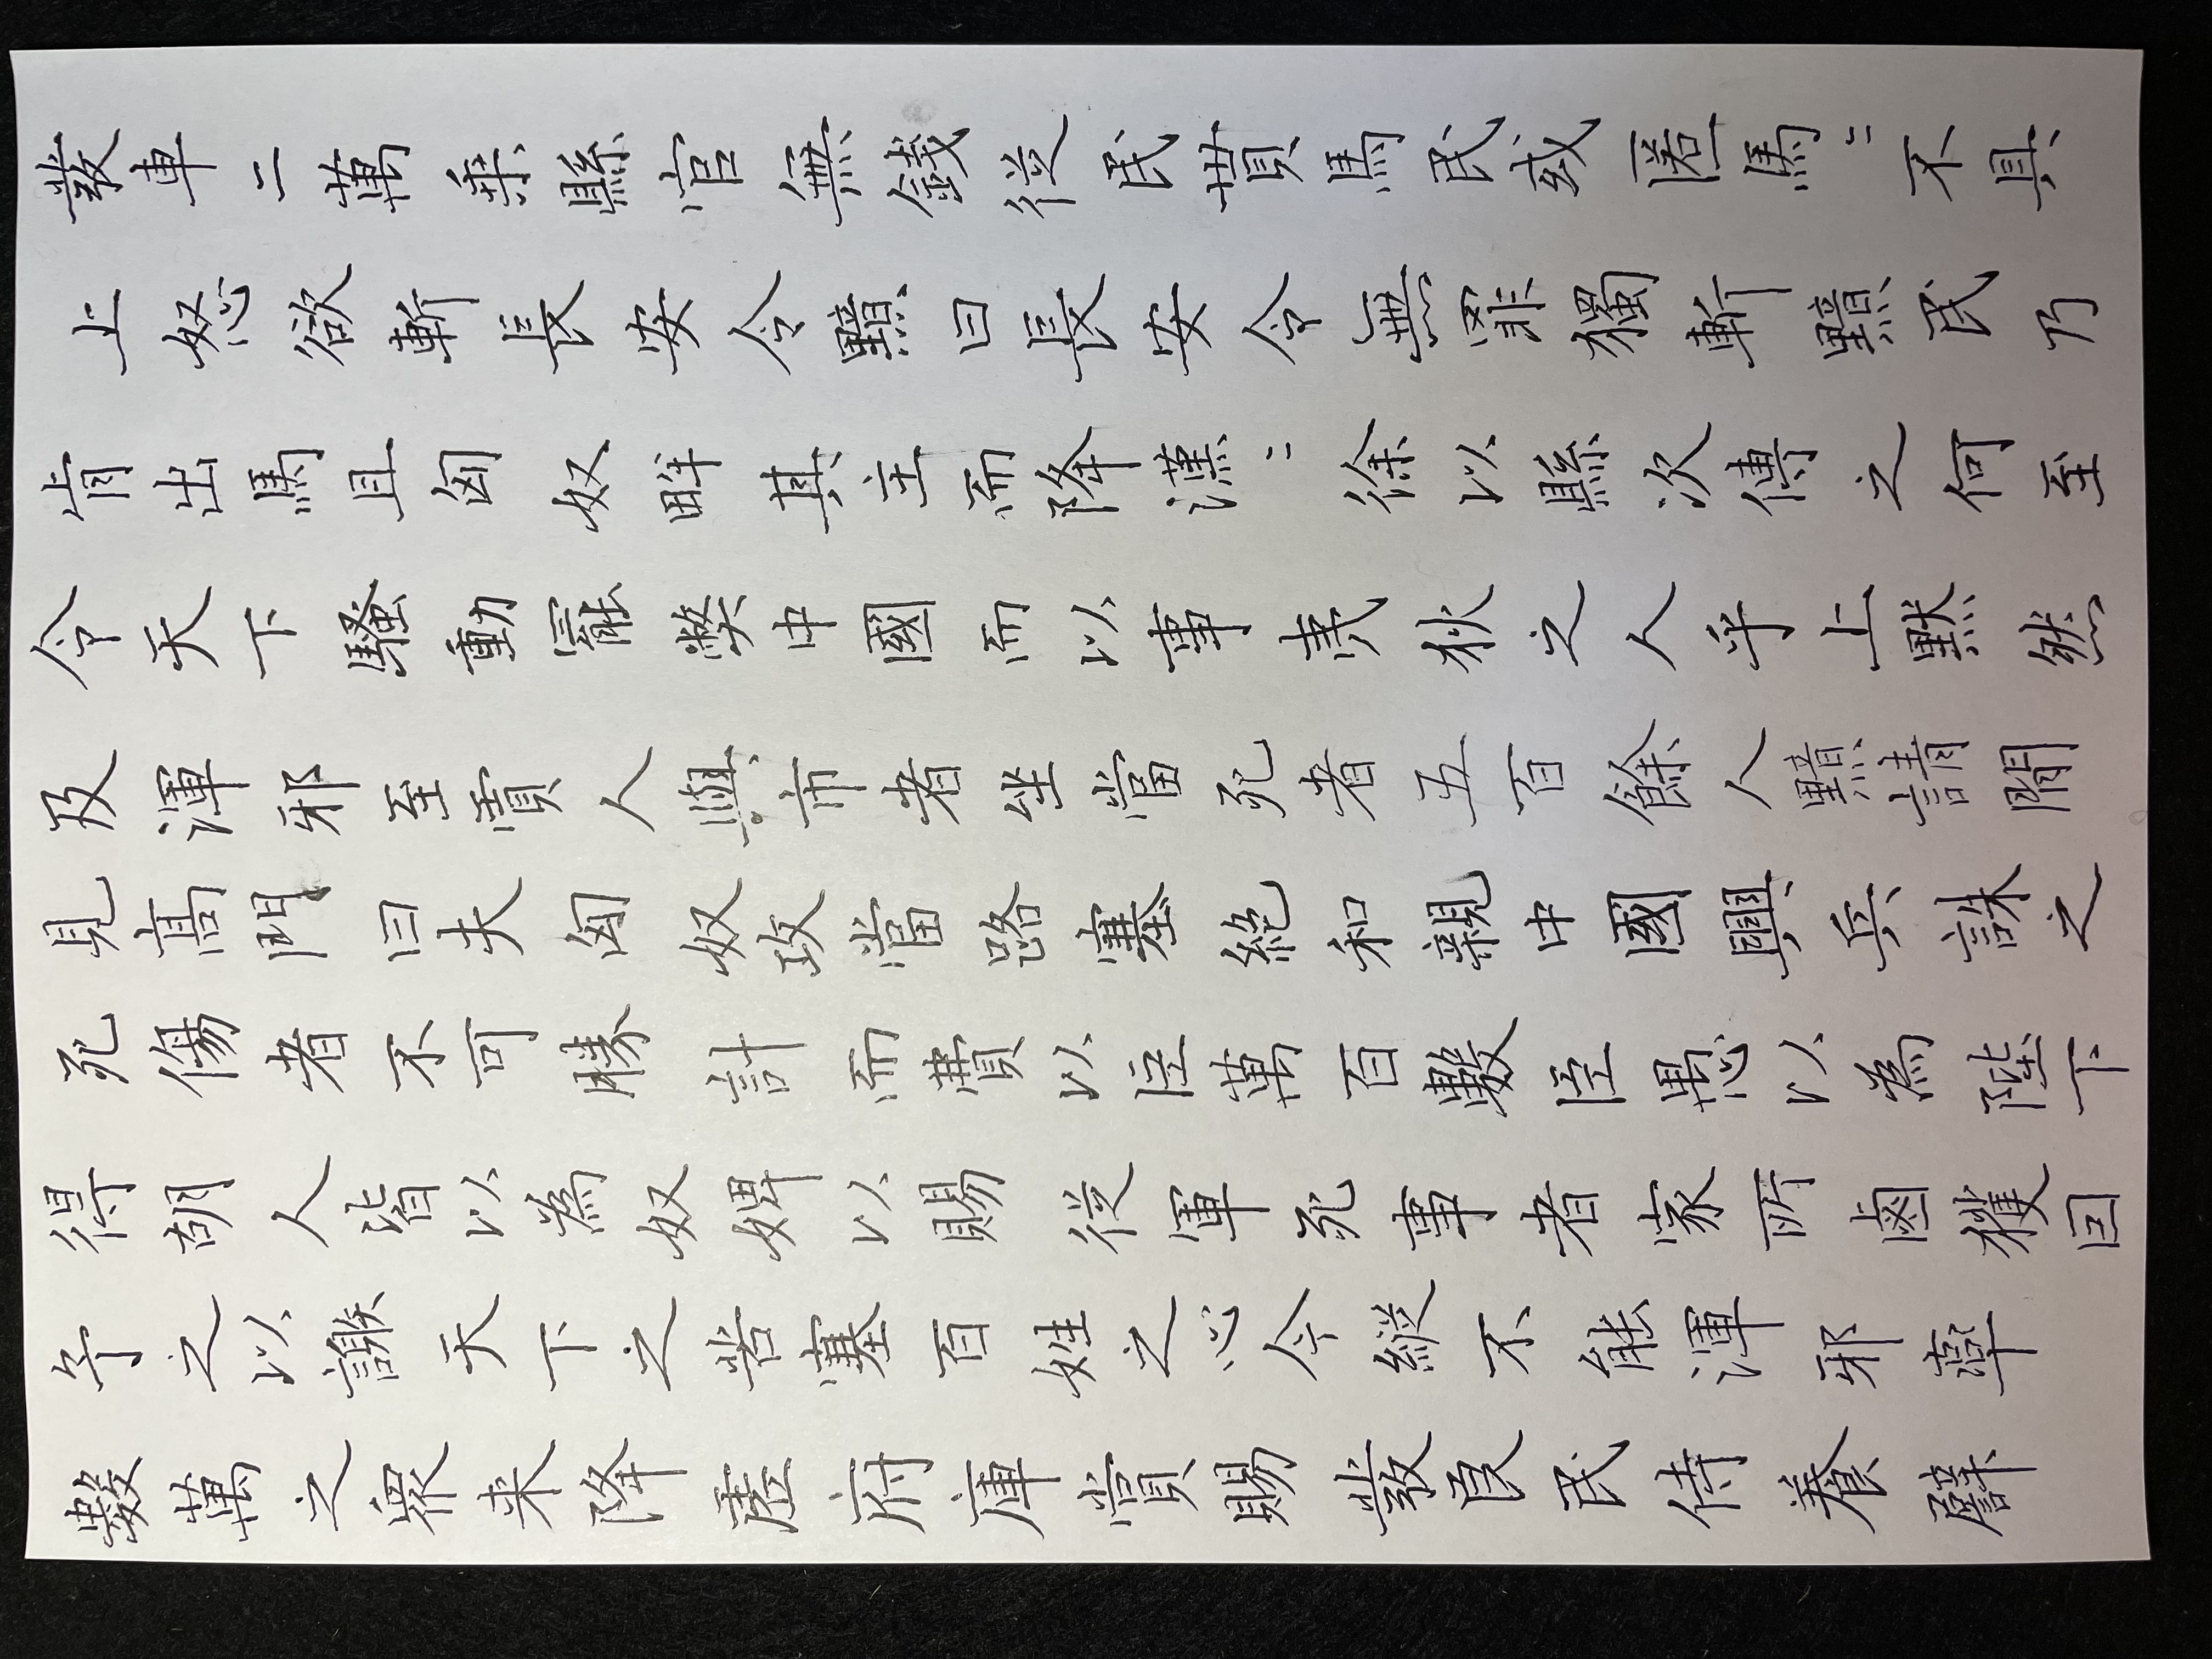 發車二萬乗縣官無錢從民貰馬民或匿馬〻不具
上怒欲斬長安令黯曰長安令無罪獨斬黯民乃
肯出馬且匈奴畔其主而降漢〻徐以縣次傳之何至
令天下騷動罷弊中國而以事夷狄之人乎上默然
及渾邪至賈人與市者坐當死者五百餘人黯請閒
見高門曰夫匈奴攻當路塞絶和親中國興兵誅之
死傷者不可勝計而費以臣萬百數臣愚以為陛下
得胡人皆以為奴婢以賜從軍死事者家所鹵獲因
予之以謝天下之苦塞百姓之心今縱不能渾邪率
數萬之衆来降虛府庫賞賜發良民侍養譬